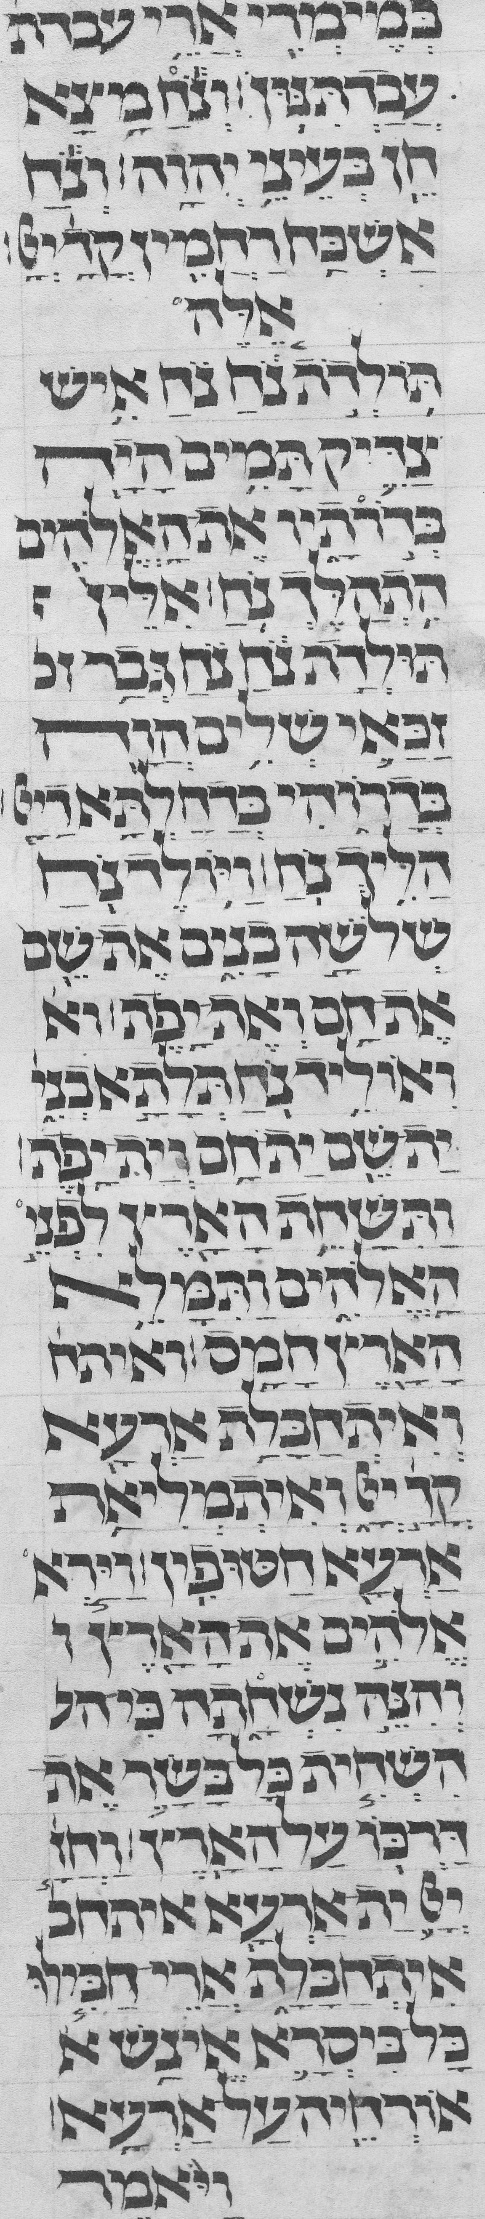 בְּמֵימְרִי אֲרֵי עבדת
עֲבַדְתִּנּוּן׃ וְנֹחַ מָצָא
חֵן בְּעֵינֵי יְהוָה׃ וְנֹחַ
אַשְׁכַּח רַחֲמִין קֳדָם יְיָ׃
אֵלֶּה
תּוֹלְדֹת נֹחַ נֹחַ אִישׁ
צַדִּיק תָּמִים הָיָה
בְּדֹרֹתָיו אֶת הָאֱלֹהִים
הִתְהַלֶּךְ נֹחַ׃ אִלֵּין
תּוּלְדַת נֹחַ נֹחַ גְּבַר זכ
זַכַּאי שְׁלִים הֲוָה
בְּדָרוֹהִי בְּדַחַלְתָּא דַייָ
הַלֵּיךְ נֹחַ׃ וַיּוֹלֶד נֹחַ
שְׁלֹשָׁה בָנִים אֶת שֵׁם
אֶת חָם וְאֶת יָפֶת׃ וא
וְאוֹלִיד נֹחַ תְּלָתָא בְנִין
יָת שֵׁם יָת חָם וְיָת יָפֶת׃
וַתִּשָּׁחֵת הָאָרֶץ לִפְנֵי
הָאֱלֹהִים וַתִּמָּלֵא
הָאָרֶץ חָמָס׃ ואיתח
וְאִיתְחַבַּלַת אַרְעָא
קֳדָם יְיָ וְאִיתְמְלִיאַת
אַרְעָא חֲטוֹפִין׃ וַיַּרְא
אֱלֹהִים אֶת הָאָרֶץ ו
וְהִנֵּה נִשְׁחָתָה כִּי ה
הִשְׁחִית כָּל בָּשָׂר אֶת
דַּרְכּוֹ עַל הָאָרֶץ׃ וַחֲזָא
יְיָ יָת אַרְעָא איתחב
אִיתְחַבַּלַת אֲרֵי חַבִּילוּ
כָּל בִּיסְרָא אֵינָשׁ א
אוֹרְחֵיהּ עַל אַרְעָא׃
ויאמר